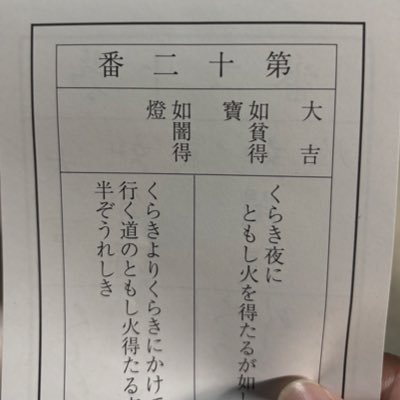 第十二番
大吉
如貧得
寶
如闇得
燈
くらき夜に
ともし火を得たるが如し
くらきよりくらきにかけて
行く道のともし火得たる
半ぞうれしき